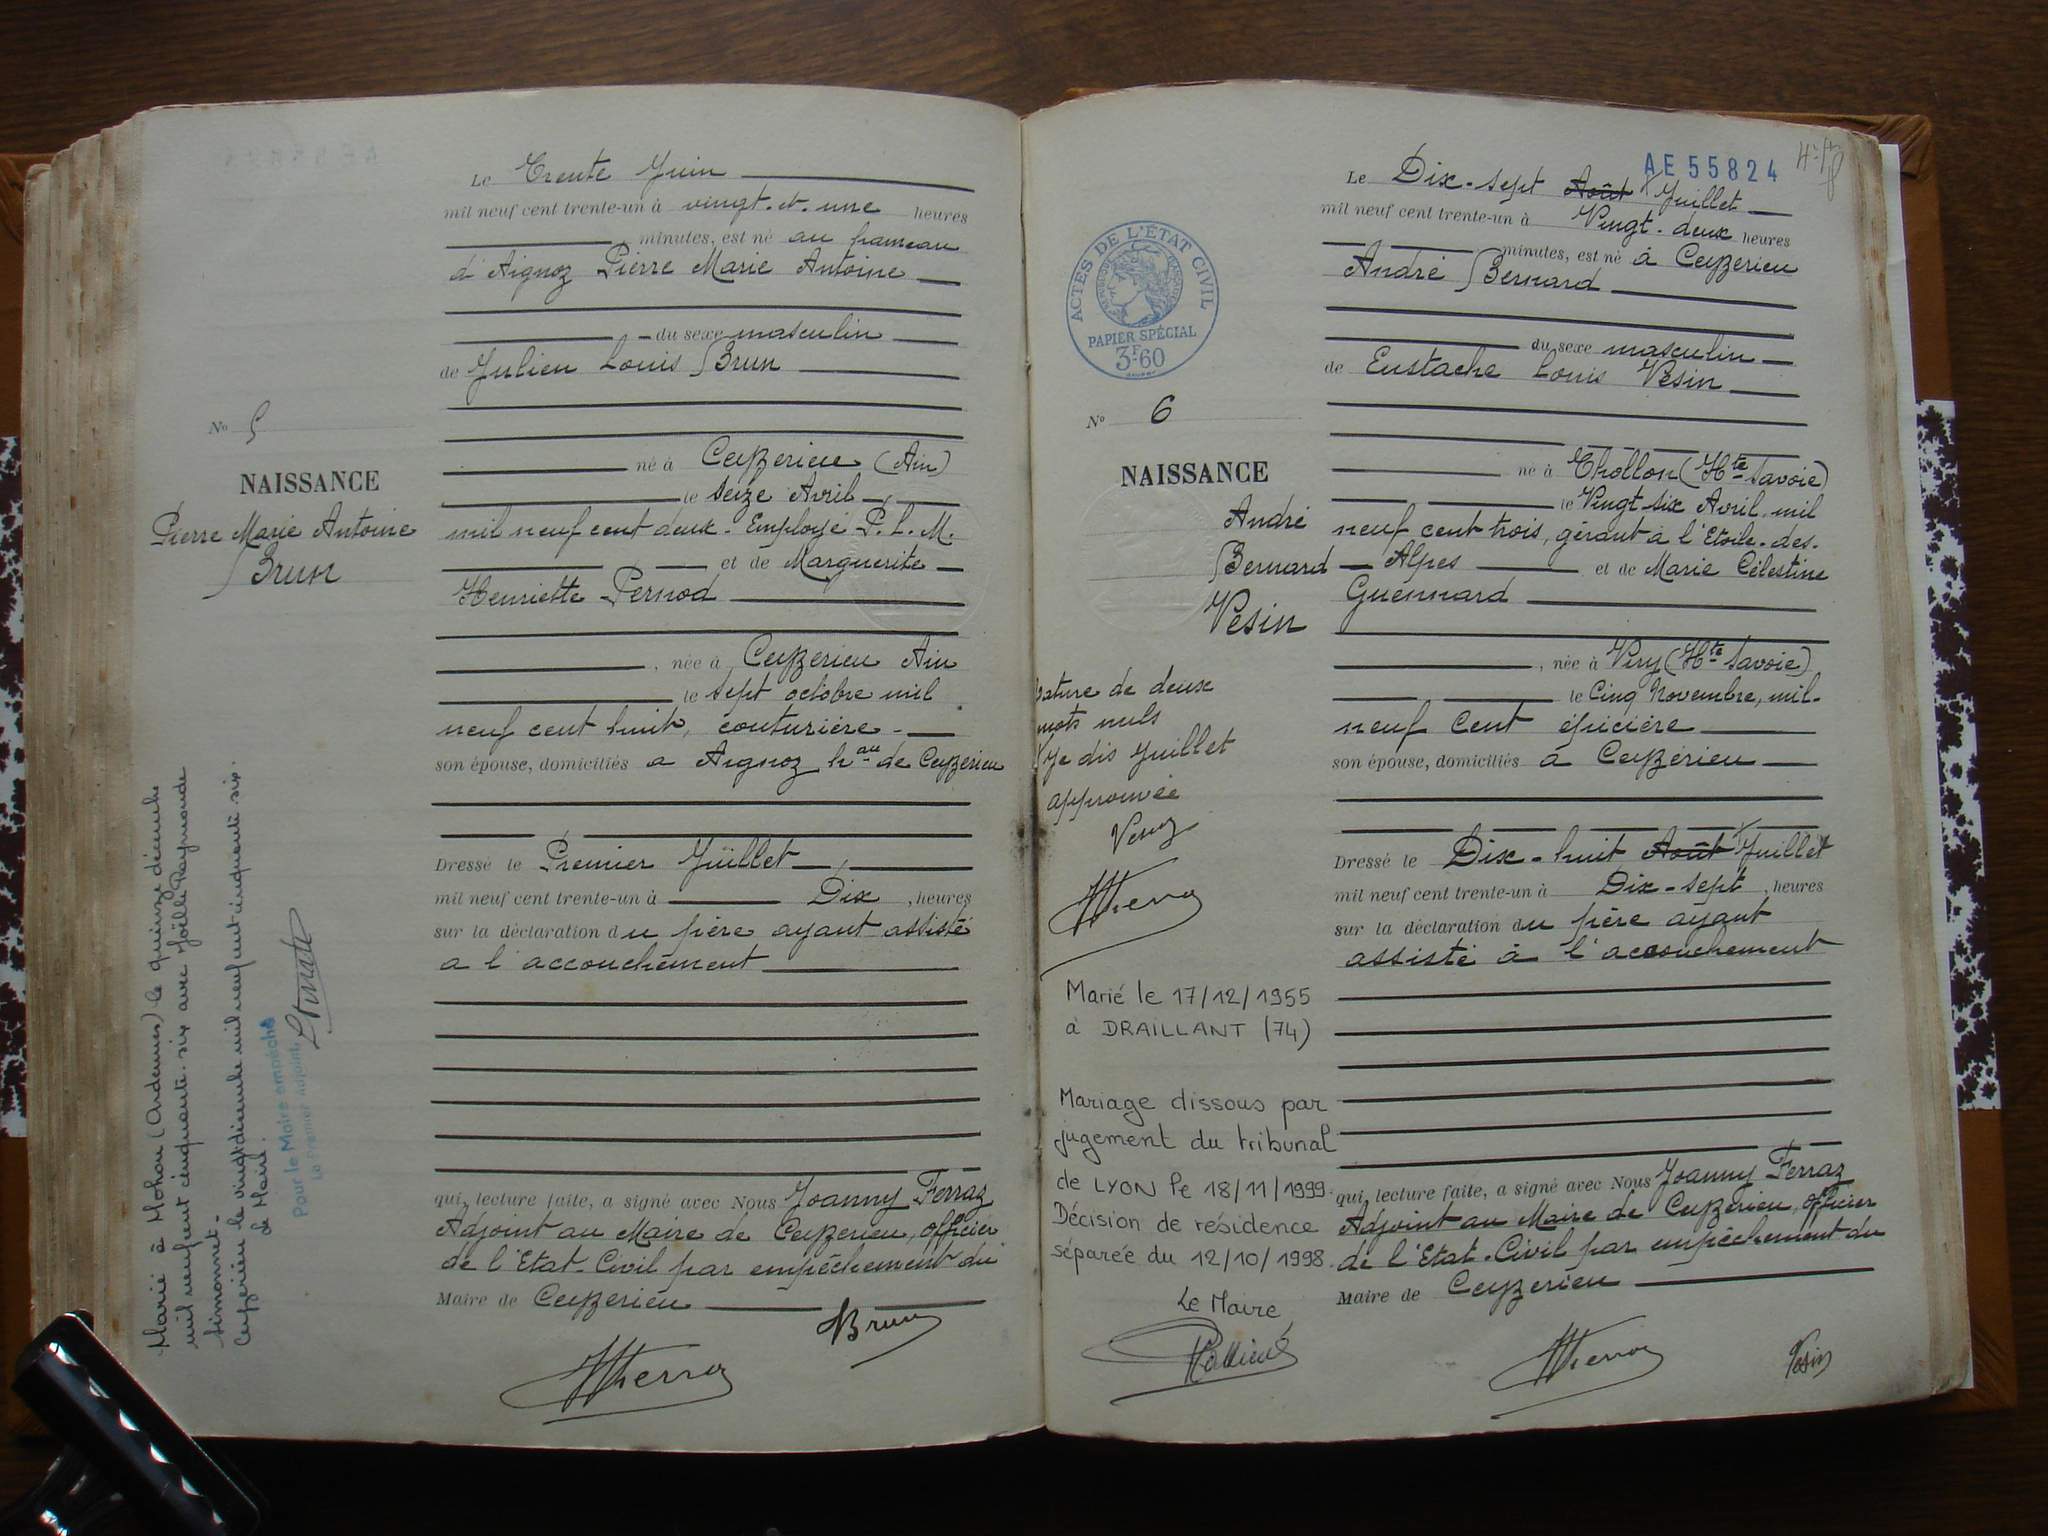 Le Trente Juin
mil neuf cent trente-un à vingt-et-une heures
minutes, est né au hameau
d'Aignoz Pierre Marie Antoine
du sexe masculin
de Julien Louis Brun
No 5
NAISSANCE
Pierre Marie Antoine
Brun
né à Ceyzerieu (Ain)
le seize Avril
mil neuf cent deux - Employé P. L. M.
et de Marguerite
Henriette Pernod
, née à Ceyzerieu Ain
le sept octobre mil
neuf cent huit, couturière -
son épouse, domiciliés a Aignoz hau de Ceyzerieu
Dressé le Premier Juillet
mil neuf cent trente-un à Dix , heures
sur la déclaration du père ayant assisté
a l'accouchement
qui, lecture faite, a signé avec Nous Joanny Ferraz
Adjoint au Maire de Ceyzerieu, officier
de l'Etat-Civil par empêchement du
Maire de Ceyzerieu
Brun
JFerraz
Marié à Mohon (Ardennes) le quinze décembre
mil neuf cent cinquante-six avec Joëlle Raymonde
Simonnet -
Ceyzérieu le vingt décembre mil neuf cent cinquante six.
Le Maire.
Pour le Maire empêché
Le Premier Adjoint
AE 55824
Le Dix-sept Août Juillet
mil neuf cent trente-un à Vingt-deux heures
minutes, est né à Ceyzerieu
André Bernard
du sexe masculin
de Eustache Louis Vesin
ACTES DE L'ÉTAT CIVIL
RÉPUBLIQUE FRANÇAISE
PAPIER SPÉCIAL
3F60
No 6
NAISSANCE
André
Bernard
Vesin
né à Thollon (Hte Savoie)
le Vingt-six Avril mil
neuf cent trois, gérant à l'Etoile-des-
Alpes et de Marie Célestine
Guennard
, née à Viry (Hte Savoie)
le Cinq Novembre, mil-
neuf cent épicière
son épouse, domiciliés à Ceyzérieu
Dressé le Dix-huit Août Juillet
mil neuf cent trente-un à Dix-sept , heures
sur la déclaration du père ayant
assisté à l'accouchement
qui, lecture faite, a signé avec Nous Joanny Ferraz
Adjoint au Maire de Ceyzerieu, officier
de l'Etat-Civil par empêchement du
Maire de Ceyzerieu
JFerraz
Vesin
rature de deux
mots nuls
Je dis Juillet
approuvée
Vesin
JFerraz
Marié le 17/12/1955
à DRAILLANT (74)
Mariage dissous par
jugement du tribunal
de LYON le 18/11/1999.
Décision de résidence
séparée du 12/10/1998.
Le Maire